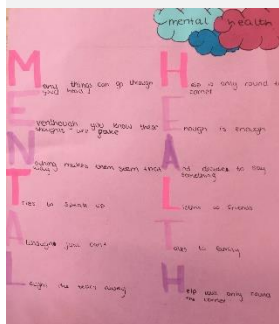 mental health
Many things can go through
your head
Eventhough you know these
thoughts are fake
Nothing makes them seem that
way
Tries to speak up
Although you can't
Laughs the tears away
Help is only round the
corner
Enough is enough
And decides to say
something
Listens to friends
Talks to family
Help was only round
the corner